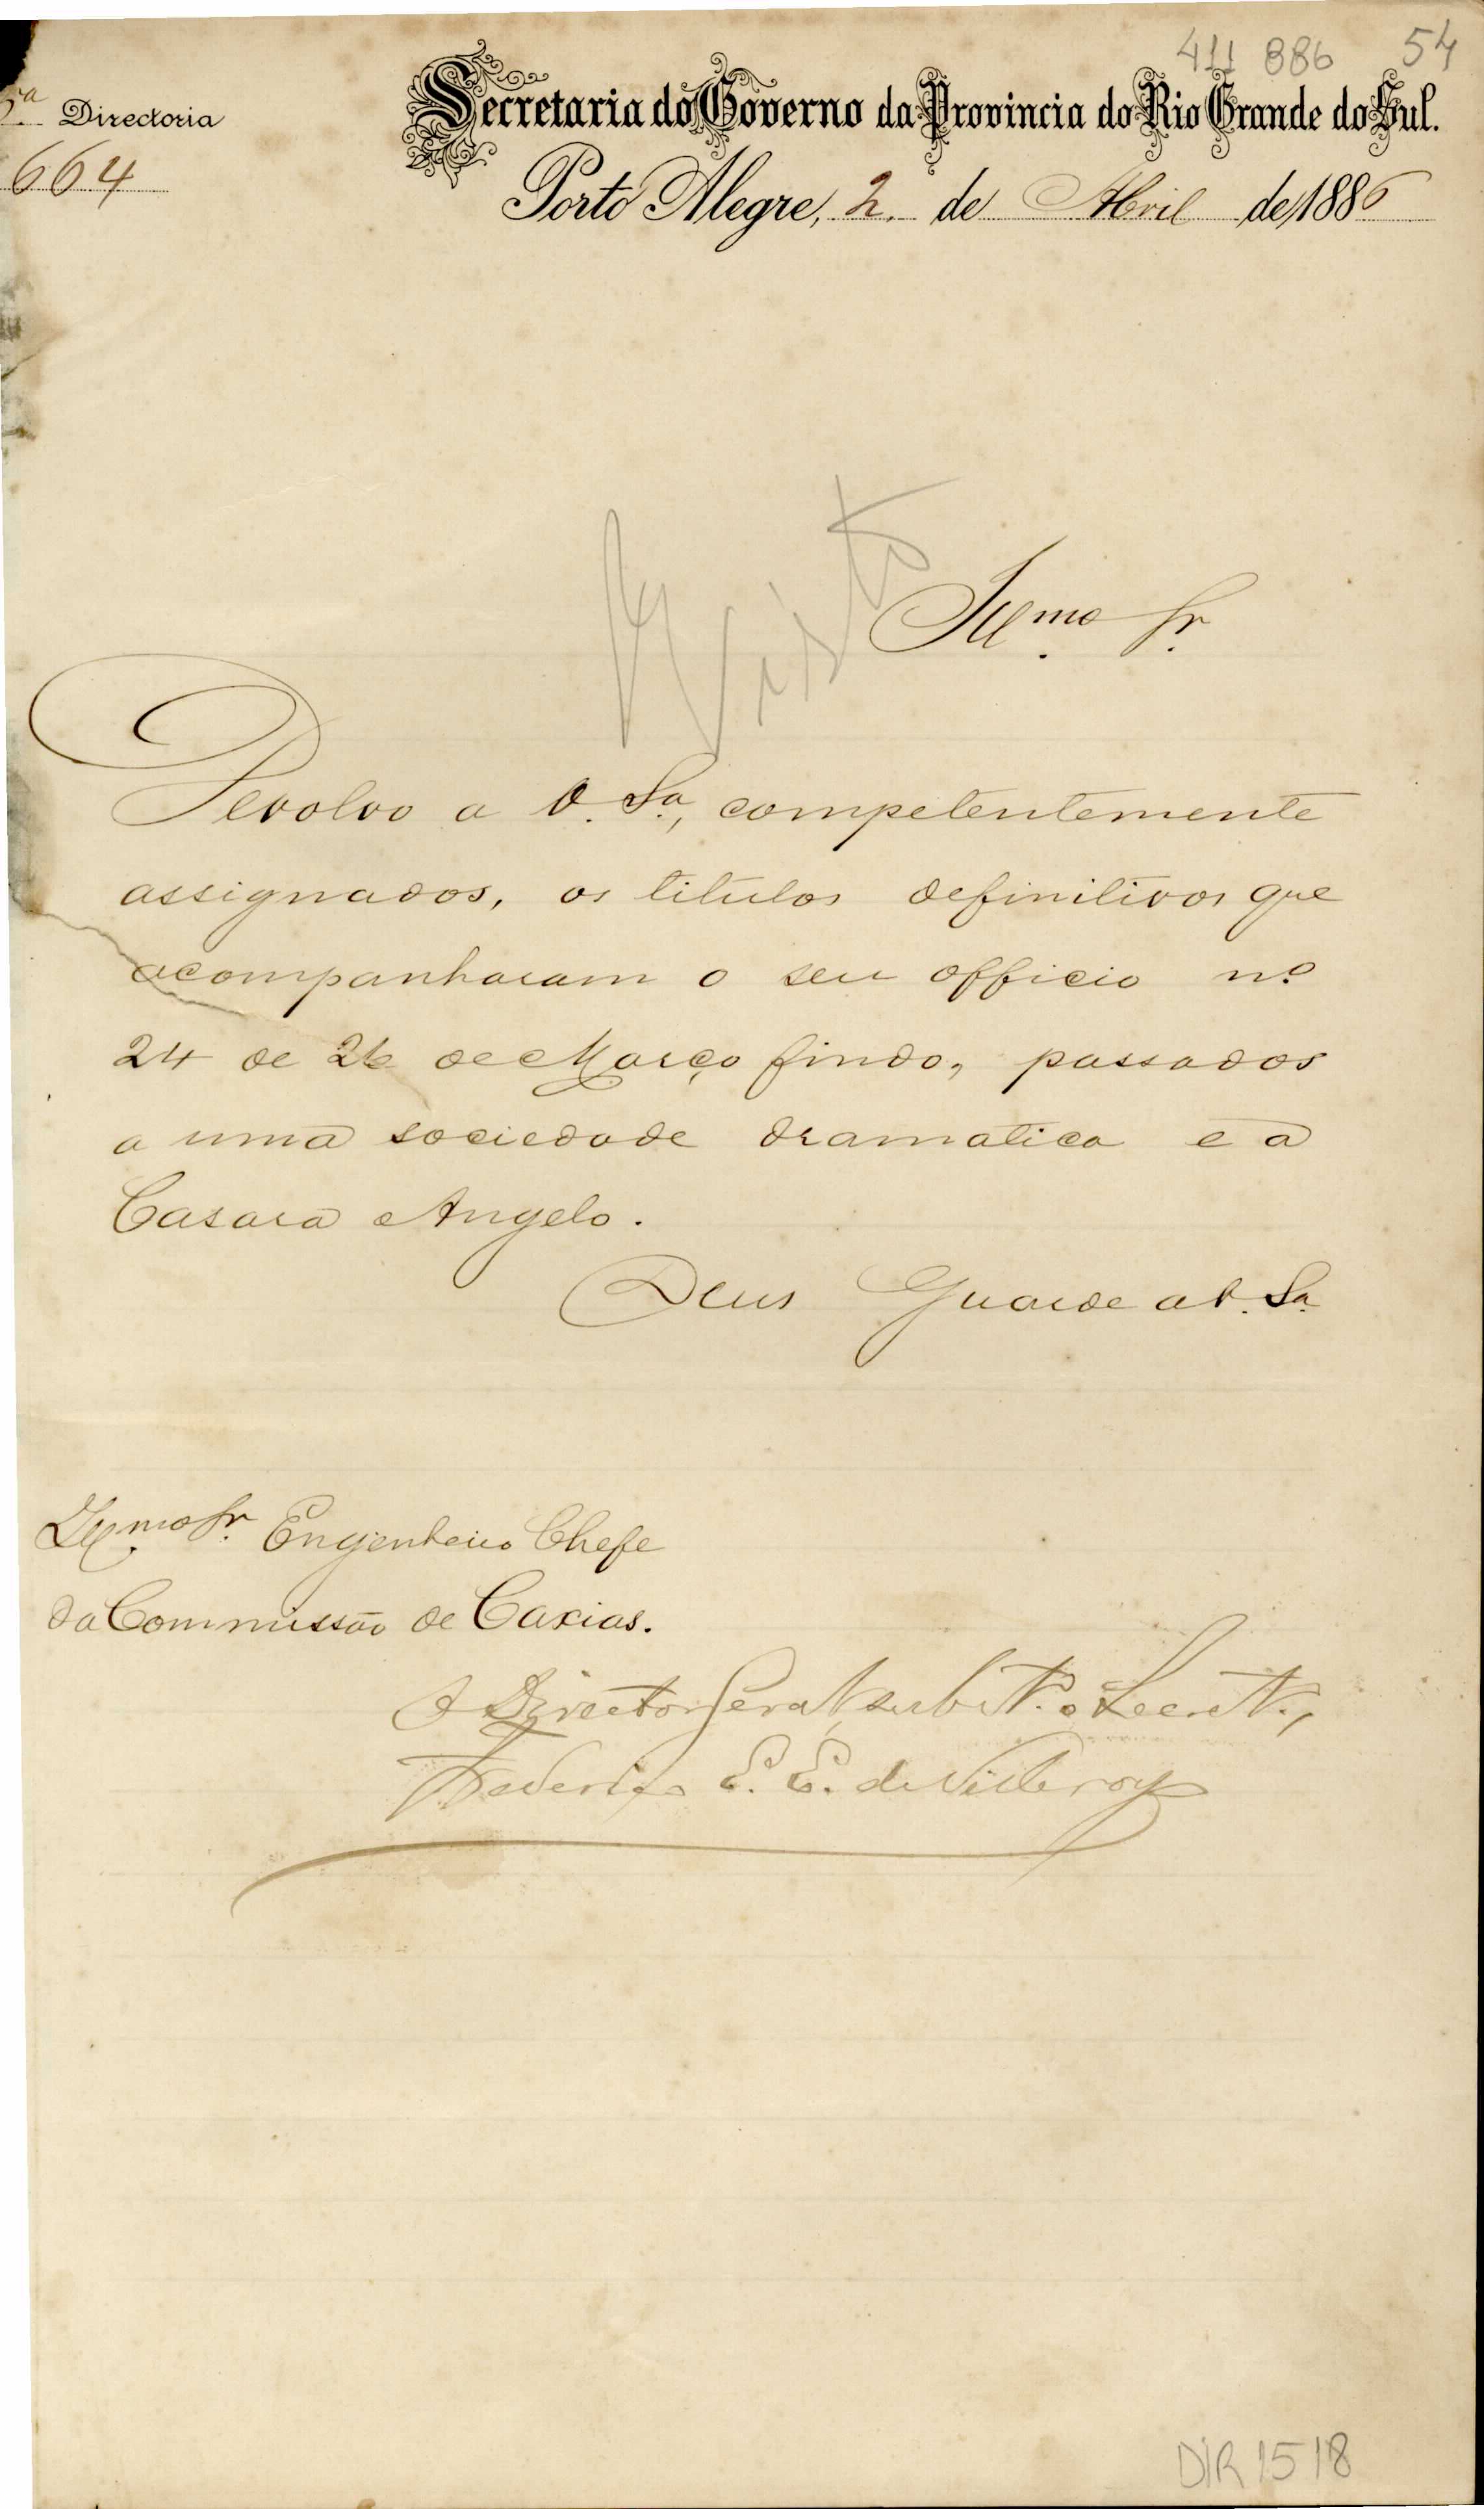 411 886 54
Directoria
664
Secretaria do Governo da Provincia do Rio Grande do Sul.
Porto Alegre, 2 de Abril de 1886
Visto
Illmo. Sr.
Devolvo a V. Sa., competentemente
assignados, os titulos definitivos que
acompanharam o seu officio no.
24 de 26 de Março findo, passados
a uma sociedade dramatica e a
Casara Angelo.
Deus Guarde a V. Sa.
Illmo. Sr. Engenheiro Chefe
da Commissão de Caxias.
O Director Geral, subst. o Secret.,
E. E. de Villeroy
DIR 1518